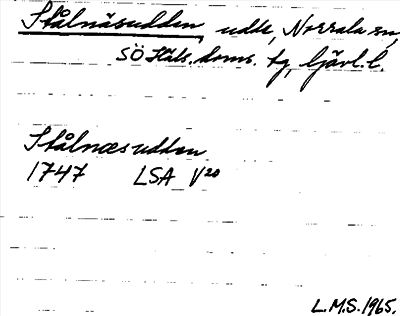 Stålnäsudden udde, Norrala sn,
SÖ Häls. doms. tg, Gävl. l.
Stålnæsudden
1747 LSA V20
L.M.S. 1965.